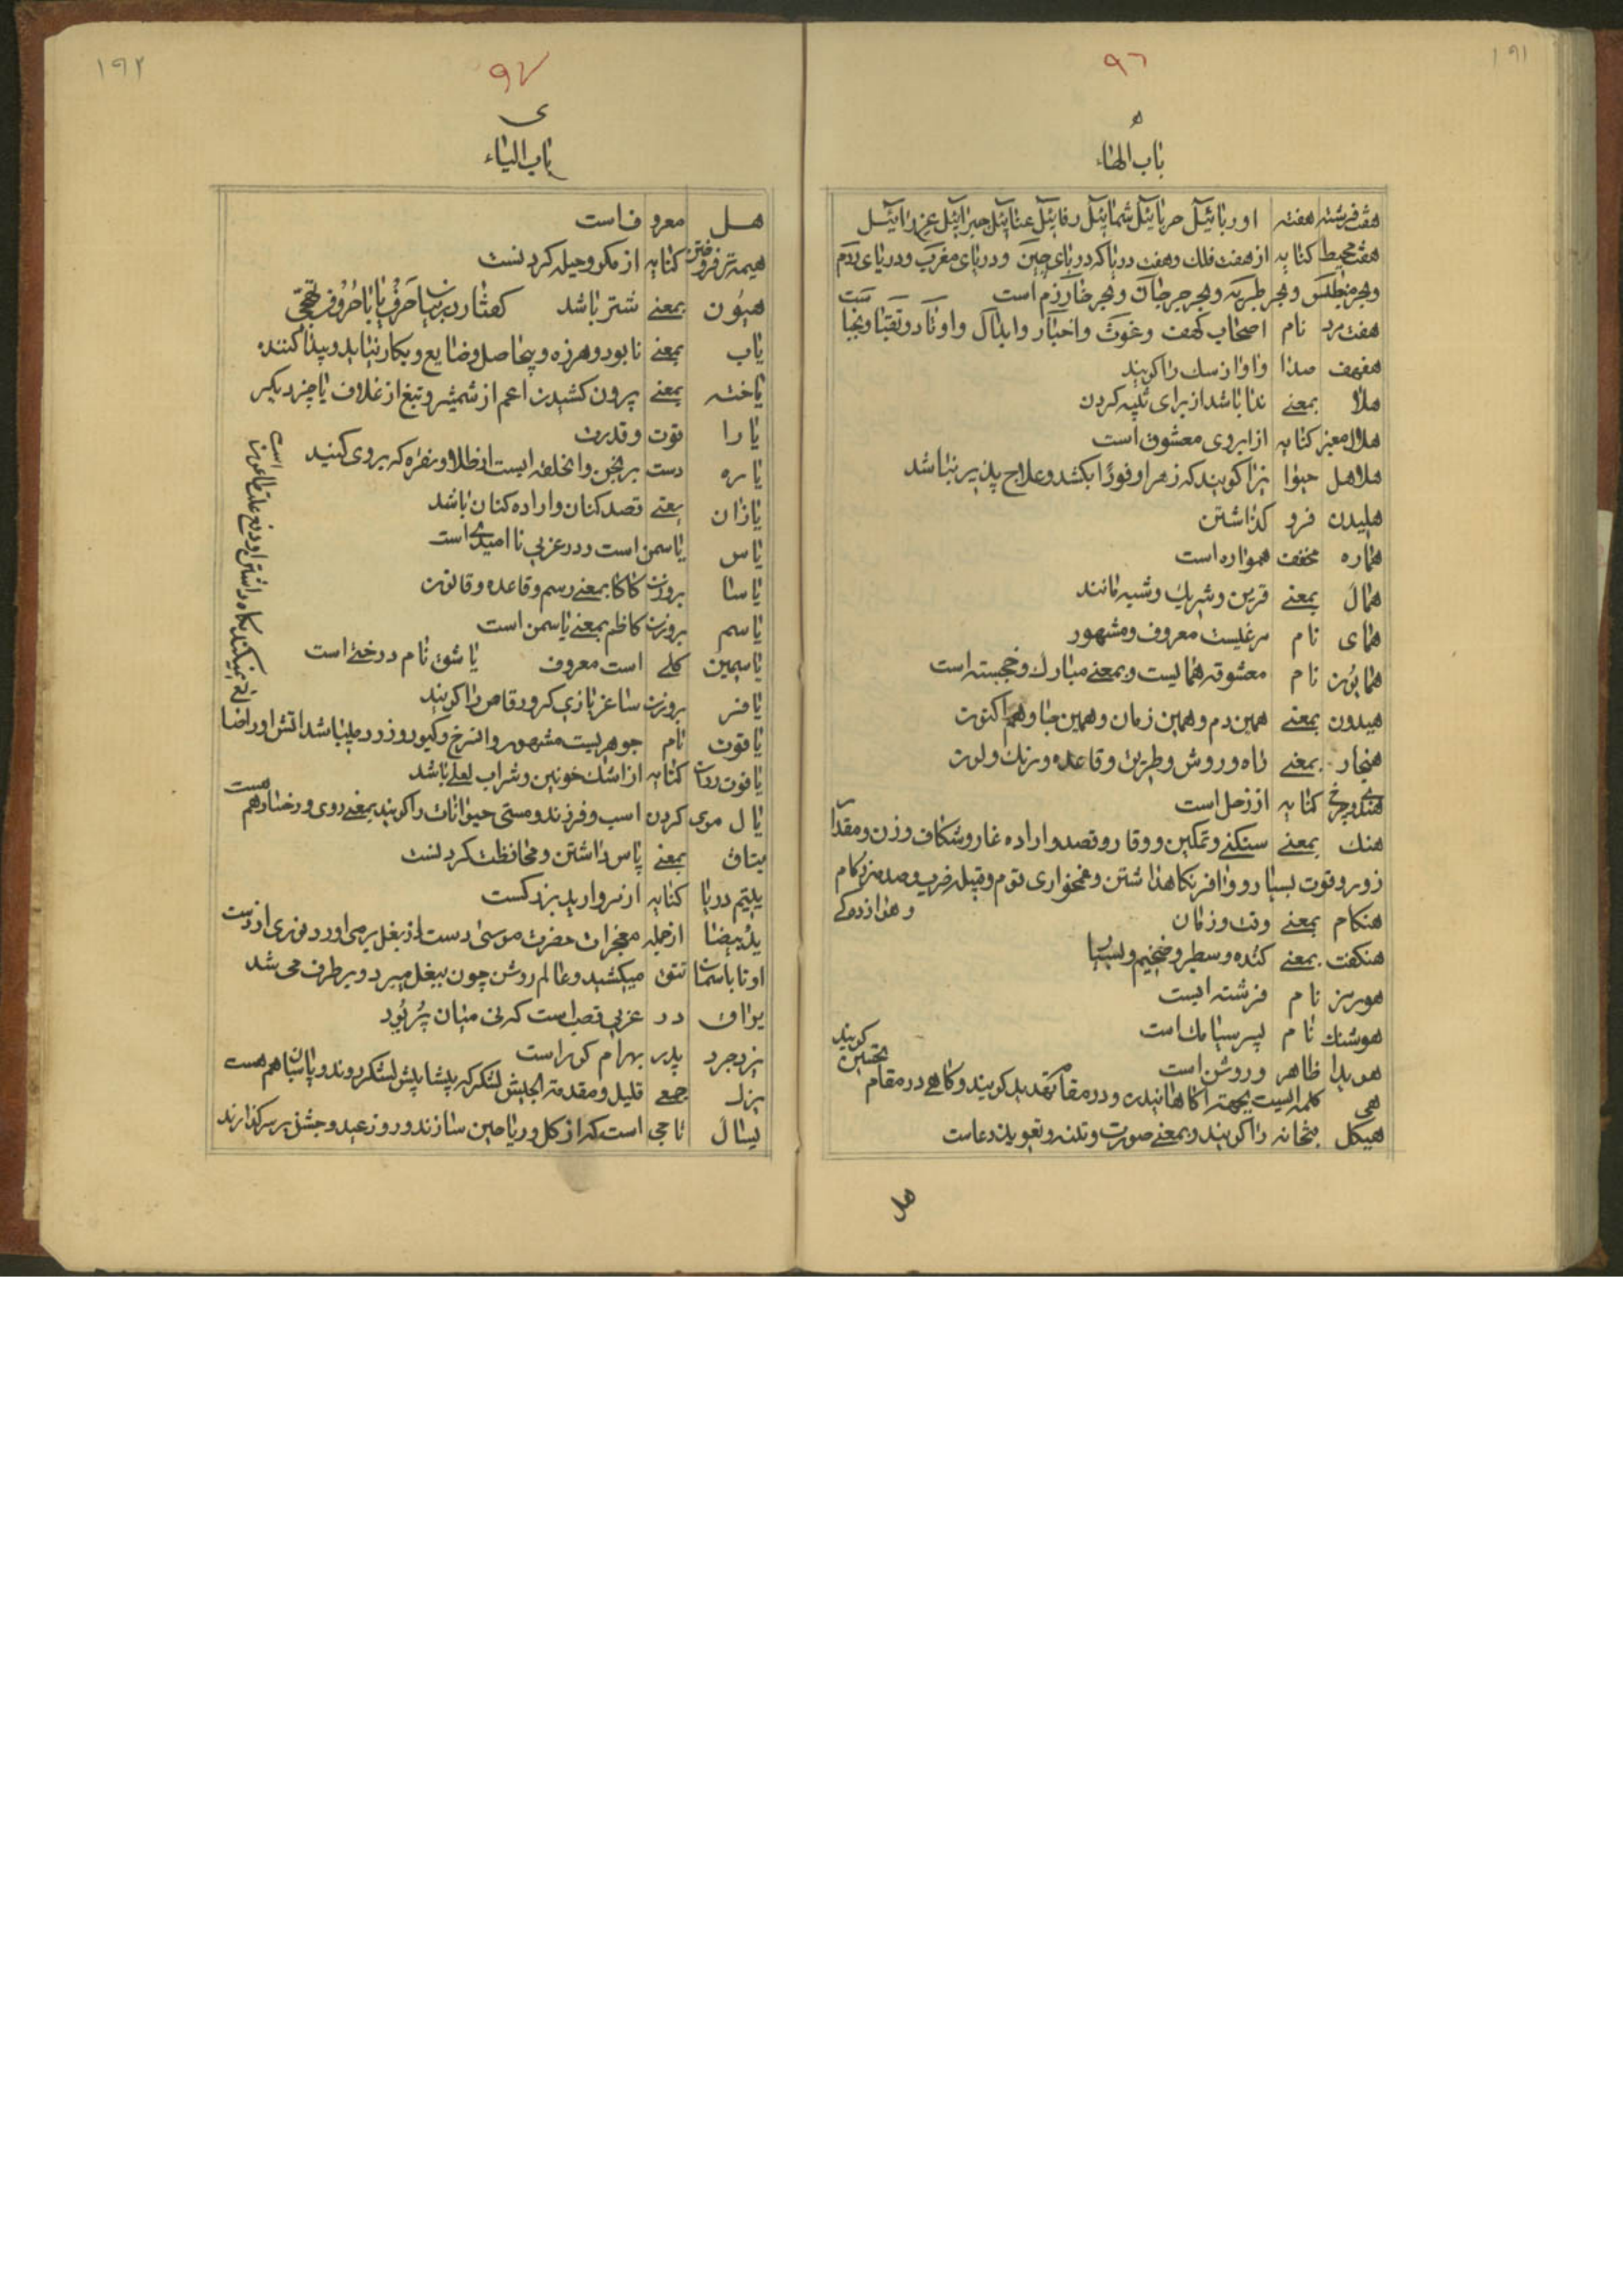 ۱۹۱
۹٦
ه
باب الهاء
هفت فرشته هفته اوربائیل حربائیل شمائیل رفائیل عتائیل جبرائیل عزرائیل
هفت محیط کنایه از هفت فلک وهفت دریا که دریای چین ودریای مغرب ودریای روم
وبحر طبریه وبحر جرجان وبحر خارزم است
هفت مرد نام اصحاب کهف وغوث واخیار وابدال واوتاد ونقبا ونجبا
هفهف صدا واواز سک را کویند
هلا بمعنی ندا باشد از برای تنبیه کردن
هلال معنبر کنایه از ابروی معشوق است
هلاهل حیوانیرا کویند که زهر او فورًا بکشد وعلاج پذیر نباشد
هلیدن فرو کذاشتن
هماره مخفف همواره است
همال بمعنی قرین وشریک وشبیه مانند
همای نام مرغیست معروف ومشهور
همایون نام معشوقه همایست وبمعنی مبارک وخجسته است
هیدون بمعنی همین دم وهمین زمان وهمین جا وهم اکنون
هنجار بمعنی راه وروش وطریق وقاعده ورنک ولون
هندوی چرخ کنایه از زحل است
هنک بمعنی سنکینی وتمکین ووقار وقصد واراده غار وشکاف وزن ومقدار
زور وقوت بسیار ووافر نکاهداشتن وغمخواری قوم وقبیله ضرب وصدمه زکام
هنکام بمعنی وقت وزمان
هنکفت بمعنی کنده وسطبر وضخیم وبسیار
هورمز نام فرشته ایست
هوشنک نام پسر سیامک است
هویدا ظاهر وروشن است
تحسین کویند
هی کلمه ایست بجهته اکاهانیدن ودر مقام تهدید کویند وکاهی در مقام
هیکل بتخانه را کویند وبمعنی صورت وتنه وتعویذ ودعاست
هل
۱۹۲
۹۷
ی
باب الیاء
هل معروف است
هیمه تر فروختن کنایه از مکر وحیله کردنست
هیون بمعنی شتر باشد کفتار در بیان حرف یا با حروف تهجی
یاب بمعنی نابود وهرزه وبیحاصل وضایع وبکار نیاید وپیدا کننده
یاخته بمعنی بیرون کشیدن اعم از شمشیر وتیغ از غلاف یا چیز دیکر
یارا قوت وقدرت
یاره دست برنجن وانحلقه ایست از طلا ونقره که بروی کنند
یازان یعنی قصد کنان واراده کنان باشد
یاس یاسمن است ودر عربی ناامیدی است
یاسا بروزن کاکا بمعنی رسم وقاعده وقانون
یاسم بروزن کاظم بمعنی یاسمن است
یاسمین کلی است معروف یاشق نام درختی است
یافر بروزن ساغر بازی کر ورقاص را کویند
یاقوت نام جوهریست مشهور وانسرخ وکبود وزرد میباشد اتش اورا ضا
یع نمیکند نکاه داشتن او دفع علت طاعون است
یاقوت روان کنایه از اشک خونین وشراب لعلی باشد
یال موی کردن اسب وفرزند ومستی حیوانات را کویند بمعنی روی ورخسار هم هست
یتاق بمعنی پاس داشتن ومحافظت کردنست
یتیم دریا کنایه از مروارید بزرکست
ید بیضا از جمله معجزات حضرت موسی دست از بغل برمی اورد ونوری از دست
او تا باسمان تتق میکشید وعالم روشن چون ببغل میبرد وبرطرف می شد
یراق در عربی قصب است که نی میان پر بود
یزدجرد پدر بهرام کور است
یزک جمعی قلیل ومقدمة الجیش لشکر که پیشاپیش لشکر روند وپاسبان هم هست
یسال تاجی است که از کل وریاحین سازند وروز عید وجشن بر سر کذارند